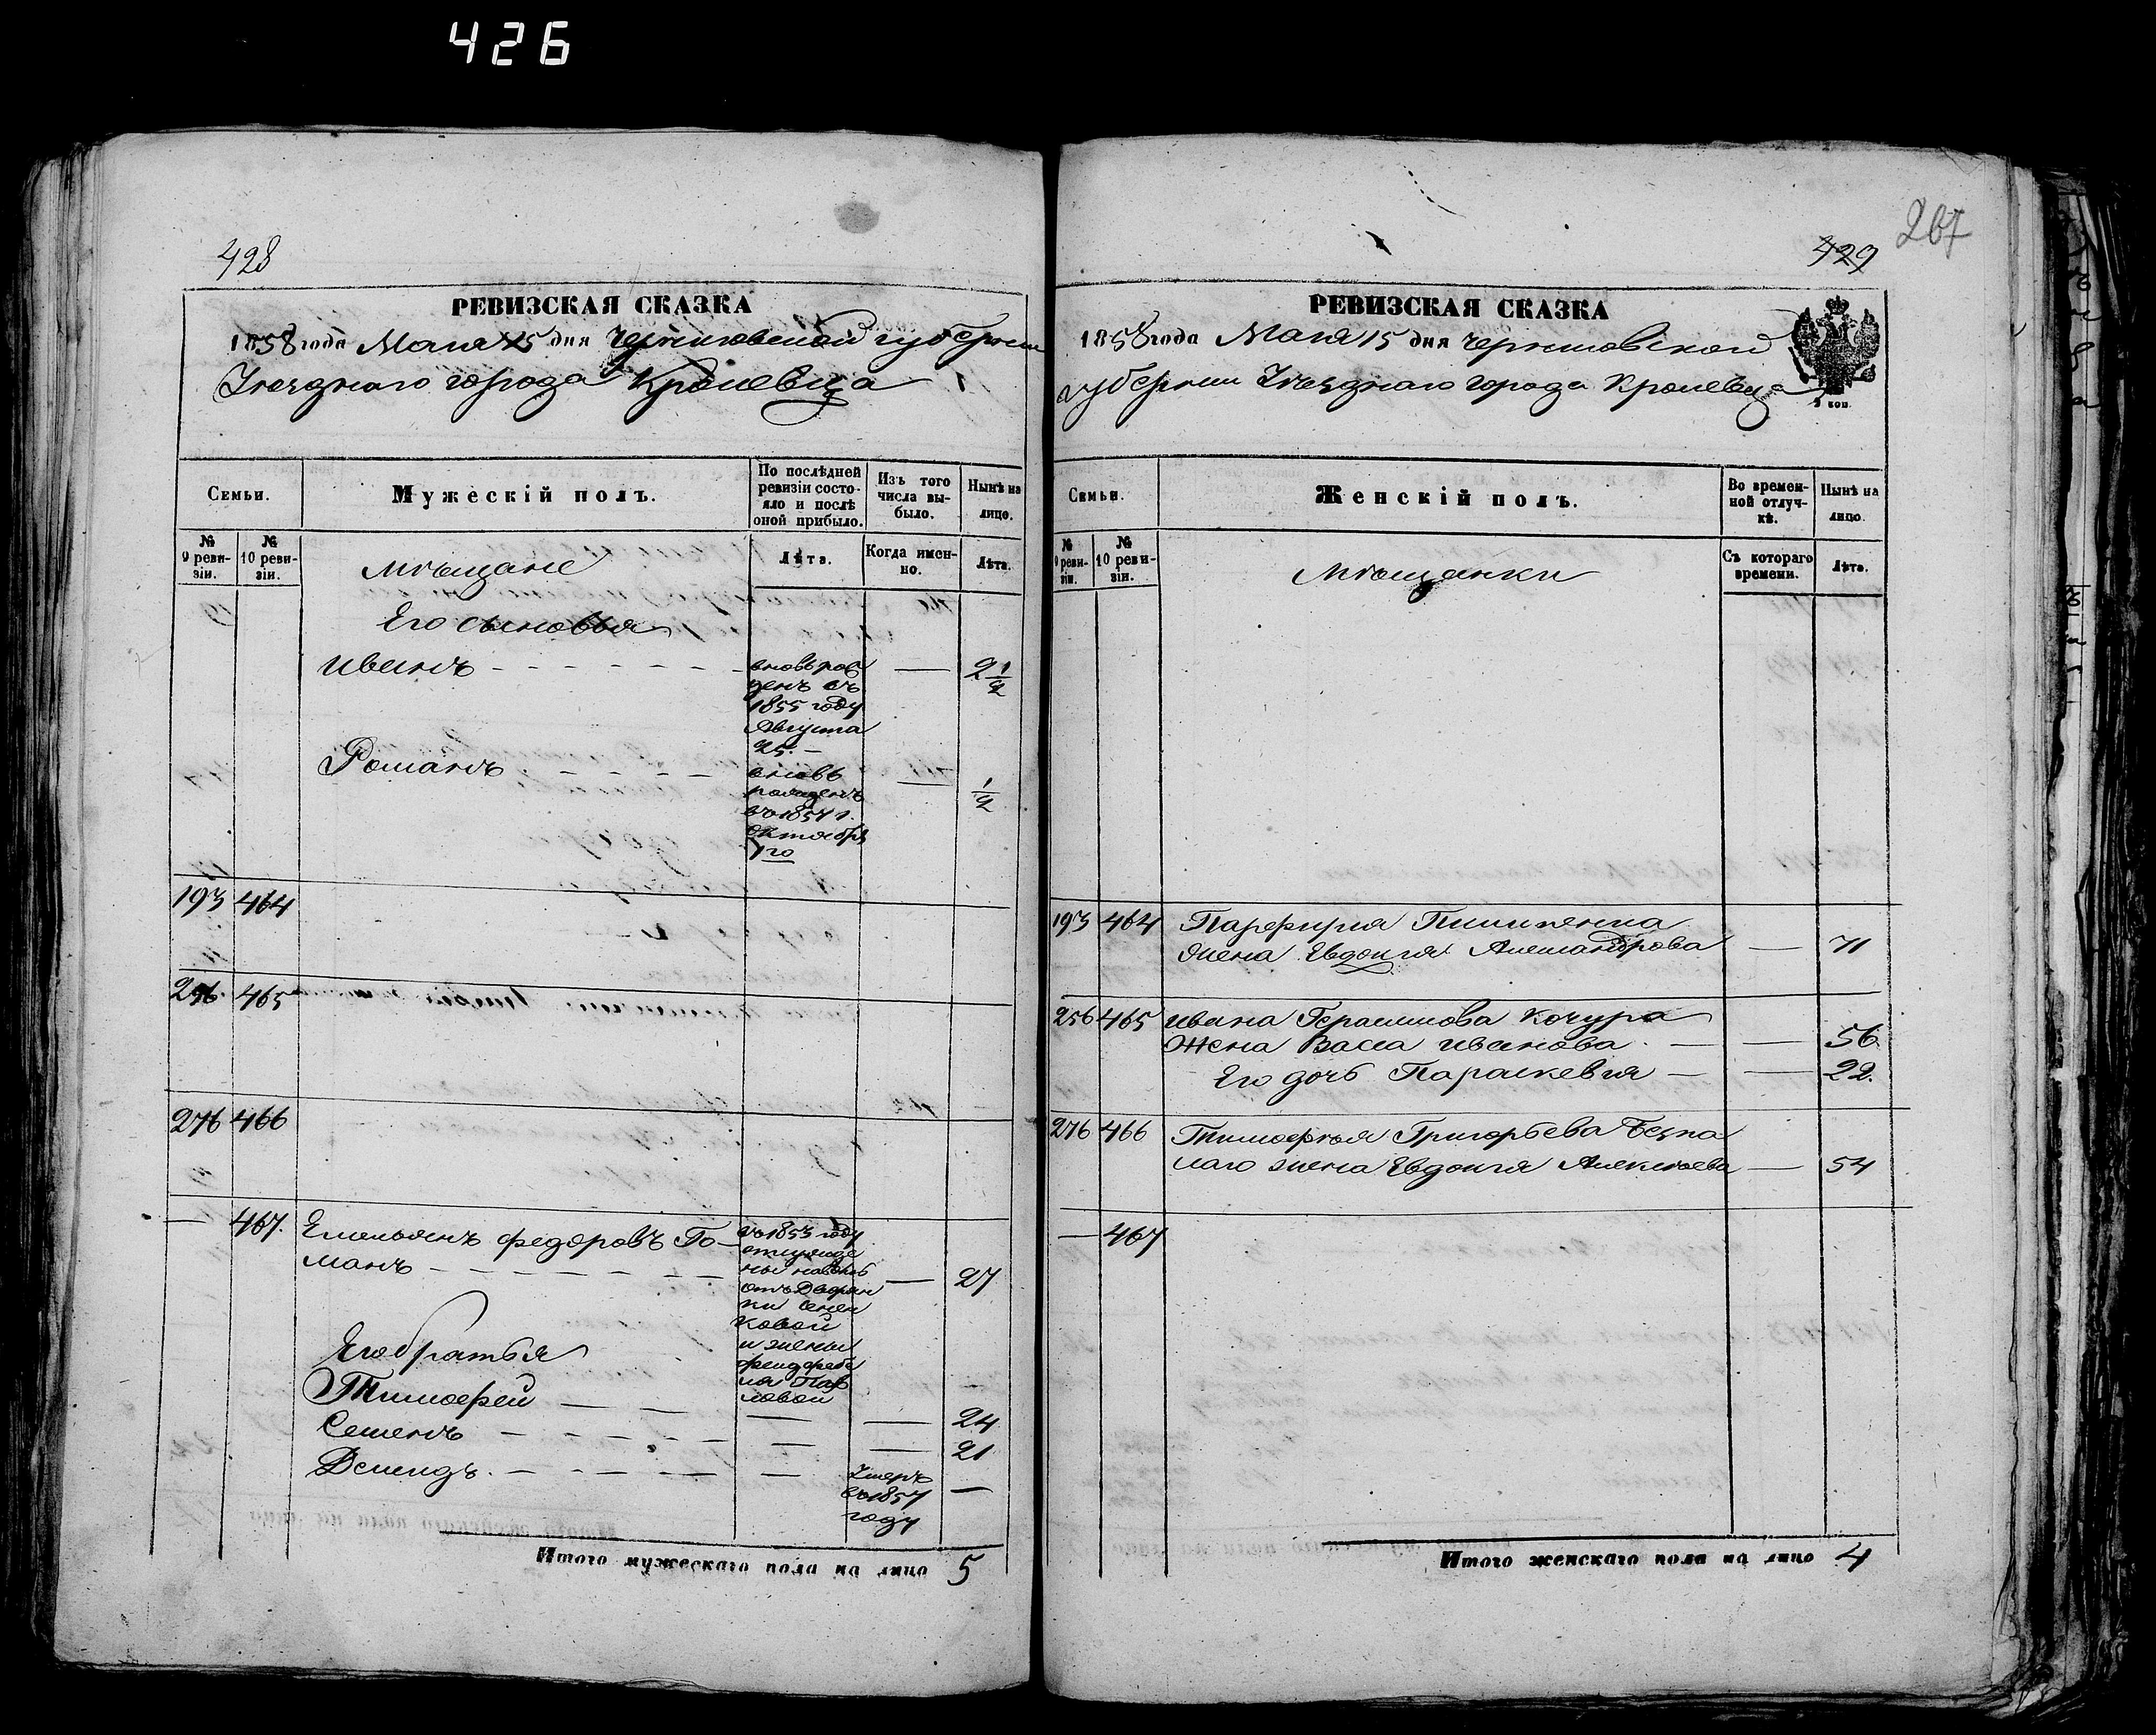 426
428
РЕВИЗСКАЯ СКАЗКА
1858 года Мая 15 дня Черниговской губернии
Уѣзднаго города Кролевца
Семьи.
Мужескій полъ.
По послѣдней ревизіи состояло и послѣ оной прибыло.
Изъ того числа выбыло.
Нынѣ на лицо.
№ 9 ревизіи.
№ 10 ревизіи.
Лѣта.
Когда именно.
Лѣта.
Мѣщане
Его сыновья
Иванъ
вновь рожденъ въ 1855 году Августа 25.
2 1/2
Романъ
вновь рожденъ въ 1857 г. Октября 1го
1/2
193 464
256 465
276 466
— 467. Емельянъ Федоровъ Го-
манъ — 27
въ 1853 году
отпущены на волю
отъ Дворянки
ковой
и жены
фельдфебеля
Павловой
Его братья
Тимофей — — 24
Семенъ — — 21
Демидъ. — Умеръ въ 1857 году —
Итого мужескаго пола на лицо 5
429
267
РЕВИЗСКАЯ СКАЗКА
1858 года Мая 15 дня Черниговской
губернии Уѣзднаго города Кролевца
Семьи.
Женскій полъ.
Во временной отлучкѣ.
Нынѣ на лицо.
№ 9 ревизіи.
№ 10 ревизіи.
Съ котораго времени.
Лѣта.
Мѣщанки
193 464 Парфирия
жена Евдокия Александрова — 71
256 465 Ивана Герасимова Кочура
Жена Васса Иванова — 56
Его дочь Параскевия — 22.
276 466 Тимофея Григорьева Безпа
лаго жена Евдокия Алексѣева — 54
— 467
Итого женскаго пола на лицо 4